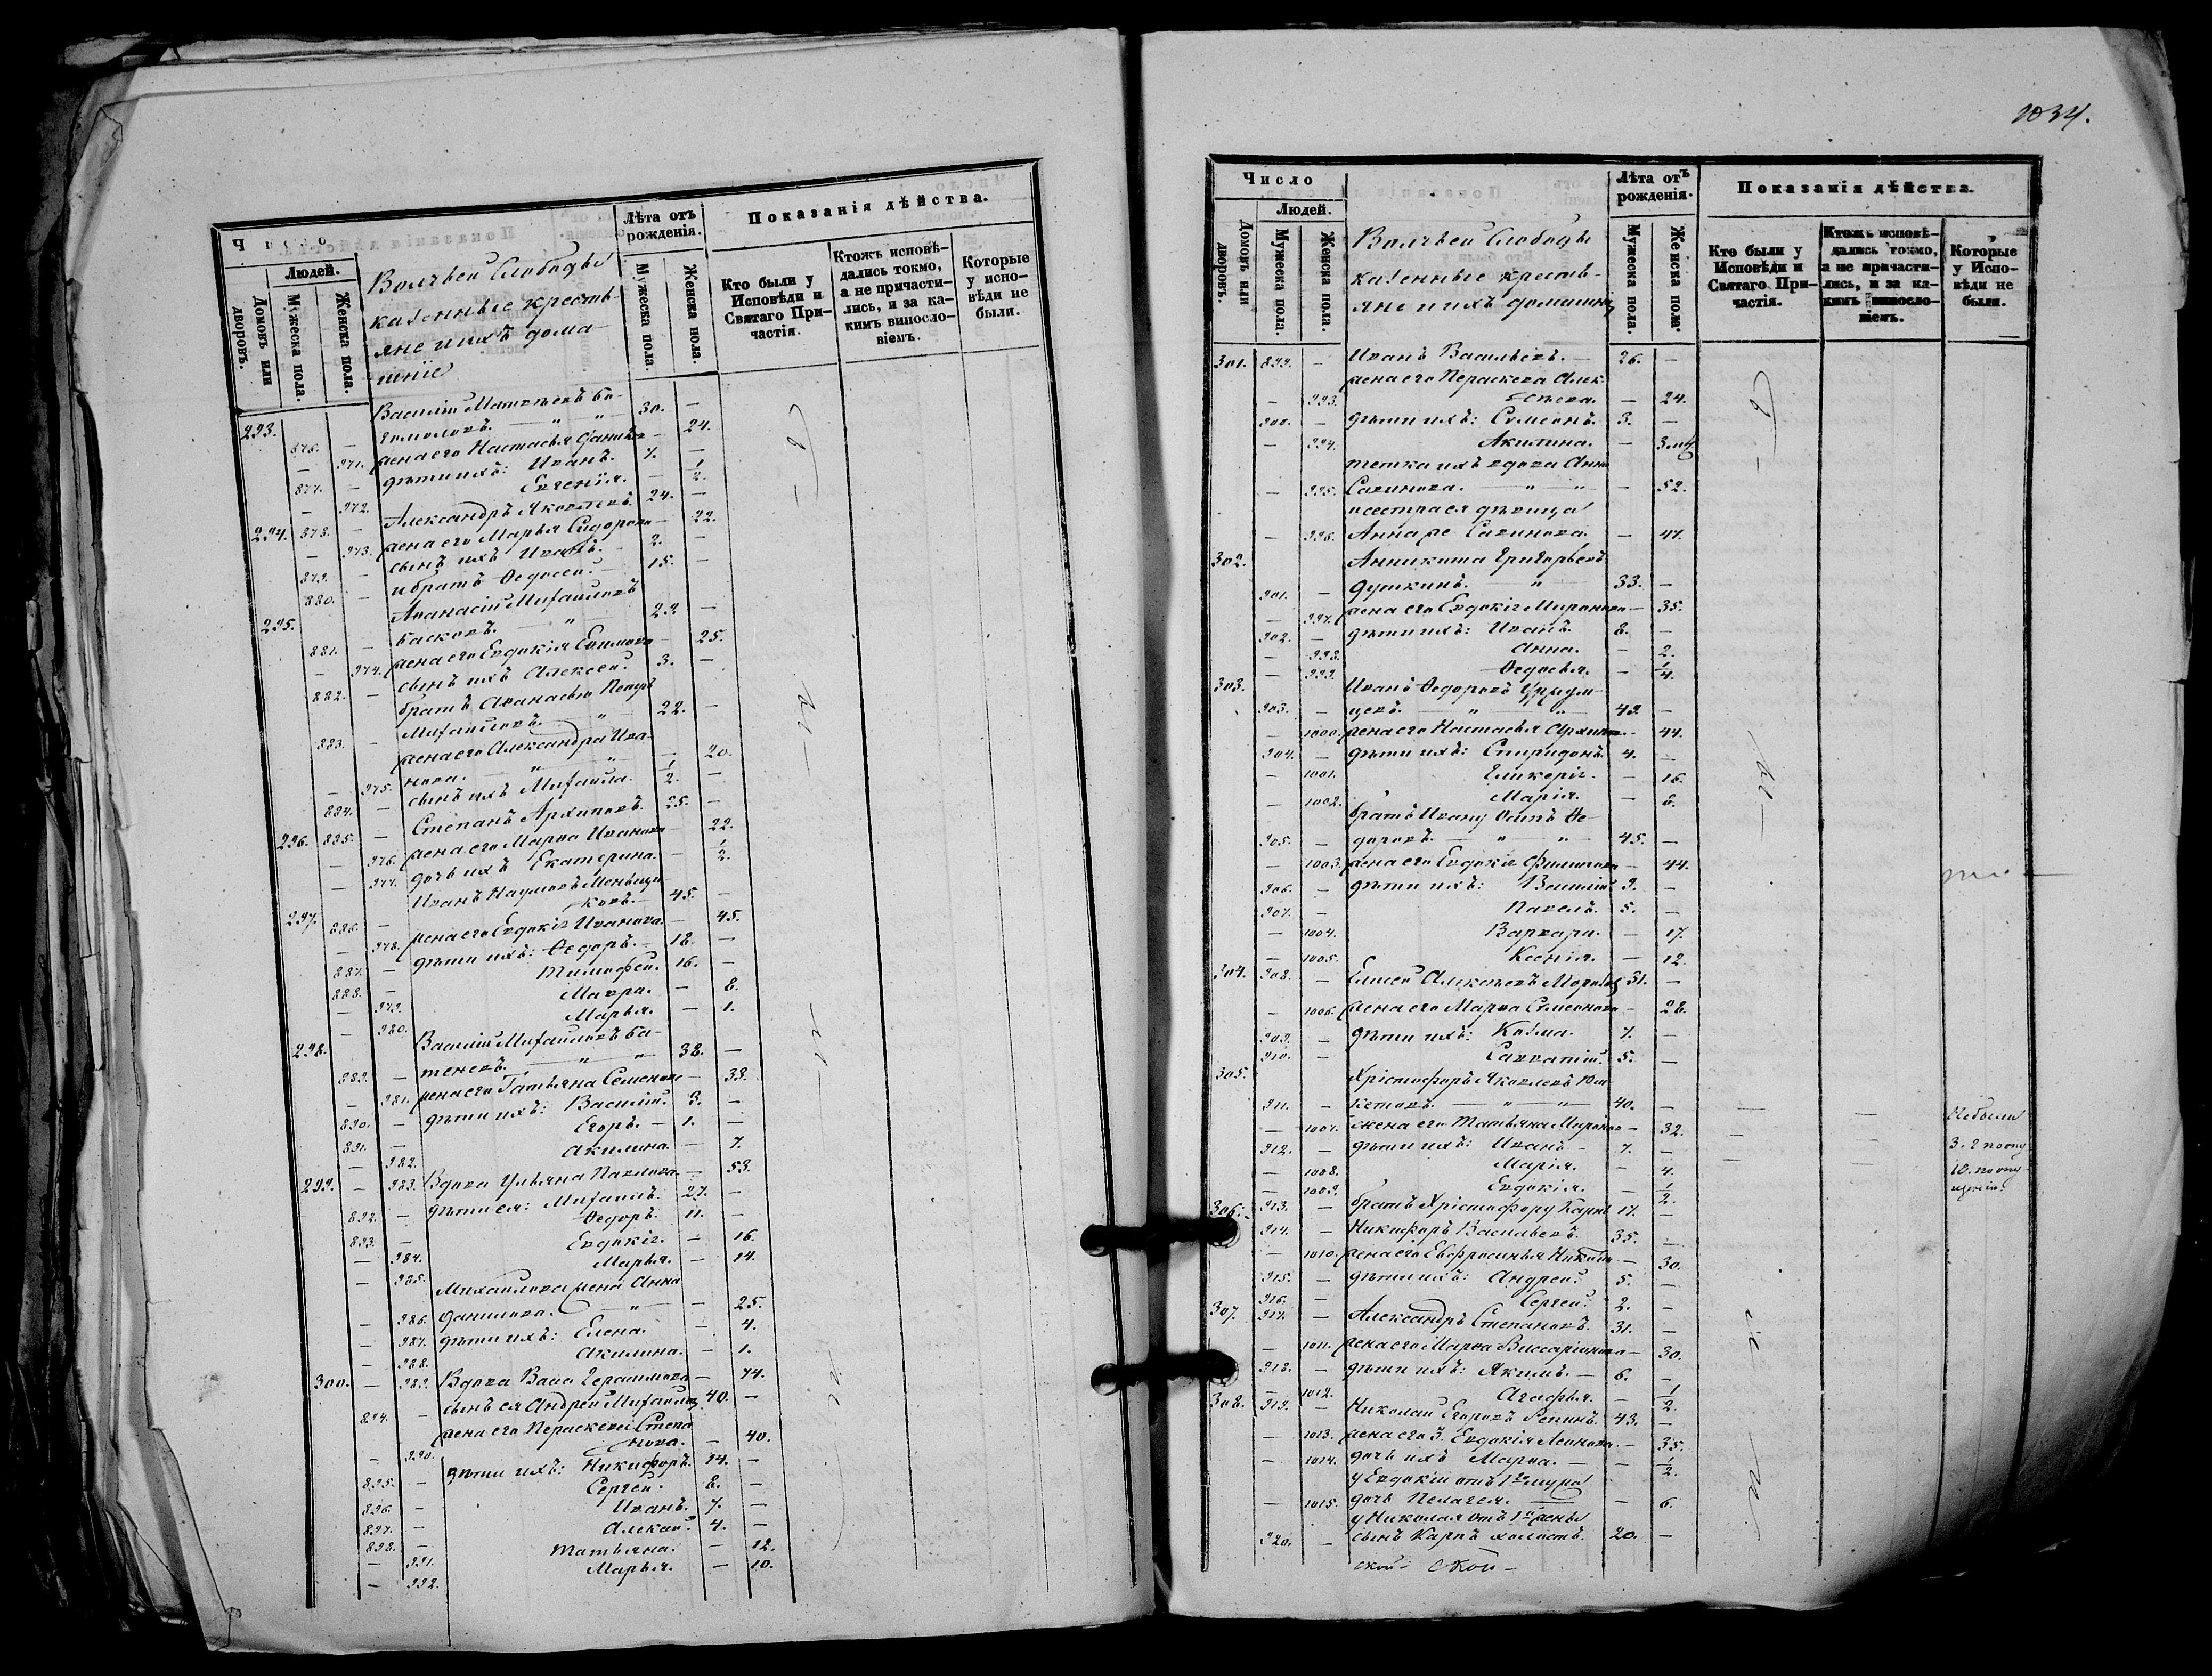 Число
Людей.
Домовъ или дворовъ.
Мужеска пола.
Женска пола.
Лѣта отъ рожденія.
Мужеска пола
Женска пола.
Показанія дѣйства.
Кто были у Исповѣди и Святаго Причастія.
Ктожъ исповѣдались токмо, а не причастились, и за какимъ винословіемъ.
Которые у исповѣди не были.
казенные кресть-
яне и ихъ дома-
шніе
293. Василій Матвѣевъ
876. — 30. —
— 971. жена его Настасья — 24.
877. — дѣти ихъ: Иванъ. 7. —
— 972. Евгенія. — 1/2.
294. 878. — Александръ Яковлевъ. 24. —
— 973. жена его Марья Сидорова — 22.
879. — сынъ ихъ Иванъ. 2. —
880. — и братъ Ѳедосей. 15. —
295. Аѳанасій Михайловъ
881. — Басковъ. — „ — 29. —
— 974. жена его Евдокія — 25.
882. — сынъ ихъ Алексей. 3. —
братъ Аѳанасью Петръ
883. — Михайловъ. „ 22. —
жена его Александра Ива-
— 975. нова. „ „ — 20.
884. — сынъ ихъ Михаила. 1/2. —
296. 885. — Степанъ Архиповъ. 25. —
— 976. жена его Марѳа Иванова — 22.
— 977. дочь ихъ Екатерина. — 1/2.
297. Иванъ Наумовъ Меньщи-
886. — ковъ. — 45. —
— 978. жена его Евдокія Иванова. — 45.
887. — дѣти ихъ: Ѳедоръ. 18. —
888. — Тимофей. 16. —
— 979. Мавра. — 8.
— 980. Марья. — 1.
298. Василій Михайловъ Ба-
889. — теневъ. — „ „ 38. —
— 981. жена его Татьяна Семенова — 33.
890. — дѣти ихъ: Василій. 3. —
891. — Егоръ. — 1. —
— 982. Акилина. — 7.
299. — 983. Вдова Ульяна Павлова. — 53.
892. — дѣти ея: Михаилъ. 27. —
893. — Ѳедоръ. 11. —
— 984. Евдокія. — 16.
— 985. Марья. — 14.
Михайлова жена Анна
— 986. Данилова. „ — 25.
— 987. дѣти ихъ: Елена. — 4.
— 988. Акилина. — 1.
300. — 989. Вдова Васса Герасимова — 74.
894. — сынъ ея Андрей Михайловъ 40. —
жена его Параскева Степа-
— 990. нова. — 40.
895. — дѣти ихъ: Никифоръ. 14. —
896. — Сергей. 8. —
897. — Иванъ. 7. —
898. — Алексей. 4. —
— 991. Татьяна. — 12.
— 992. Марья. — 10.
1034.
Число
Людей.
Домовъ или дворовъ.
Мужеска пола.
Женска пола.
Волчьей Слободы
казенные кресть-
яне и ихъ домашніе
Лѣта отъ рожденія.
Мужеска пола.
Женска пола.
Показанія дѣйства.
Кто были у Исповѣди и Святаго Причастія.
Ктожъ исповѣдались токмо, а не причастились, и за какимъ винословіемъ.
Которые у Исповѣди не были.
301. 899. — Иванъ Васильевъ. — 26. —
жена его Пераскева Алек-
— 993. сѣева. — 24.
900. — дѣти ихъ: Семеонъ. 3. —
— 994. Акилина. — 3 мѣс
тетка ихъ вдова Анна
— 995. Савинова. — „ „ — 52.
и сестра ея дѣвица
— 996. Анна же Савинова. — 47.
302. Анникита Григорьевъ
901. — Душкинъ. — „ 33. —
— 997. жена его Евдокія Миронова — 35.
902. — дѣти ихъ: Иванъ. 8. —
— 998. Анна. — 2.
— 999. Ѳедосья. — 1/4.
303. Иванъ Ѳедоровъ
903. — цевъ. „ „ 49. —
— 1000. жена его Настасья Архипова — 44.
904. — дѣти ихъ: Спиридонъ. 4. —
— 1001. Гликерія. — 16.
— 1002. Марія. — 8.
братъ Ивану Осипъ Ѳе-
905. — доровъ. — „ „ 45. —
— 1003. жена его Евдокія Филипова — 44.
906. — дѣти ихъ: Василій 9. —
907. — Павелъ. 5. —
— 1004. Варвара. — 17.
— 1005. Ксенія. — 12.
304. 908. — Елисей Алексѣевъ Морозовъ 31. —
— 1006. жена его Марѳа Семеонова — 28.
909. — дѣти ихъ: Козма. 7. —
910. — Савватій. 5. —
305. Христофоръ Яковлевъ
911. — кетовъ. — „ — „ 40. — — — Небыли
— 1007. жена его Татьяна Миронова — 32.
912. — дѣти ихъ: Иванъ — 7. — — —
— 1008. Марія. — 4.
— 1009. Евдокія. — 1/2.
913. — братъ Христофору Карпъ 17. —
306. 914. — Никифоръ Васильевъ. 35. —
— 1010. жена его Евфросинья — 30.
915. — дѣти ихъ: Андрей. 5. —
916. — Сергей. 2. —
307. 917. — Александръ Степановъ. 31. —
— 1011. жена его Марѳа Виссаріонова — 30.
918. — дѣти ихъ: Якимъ. — 6. —
— 1012. Агафья. — 1/2.
308. 919. — Николай Егоровъ Репинъ. 43. —
— 1013. жена его 3. Евдокія Леонова. — 35.
— 1014. дочь ихъ Марѳа. — — 1/2.
у Евдокіи отъ 1го мужа
— 1015. дочь Пелагея. — 6.
у Николая отъ 1й жены
920. — сынъ Карпъ холостъ. 20. —
ской — ской —